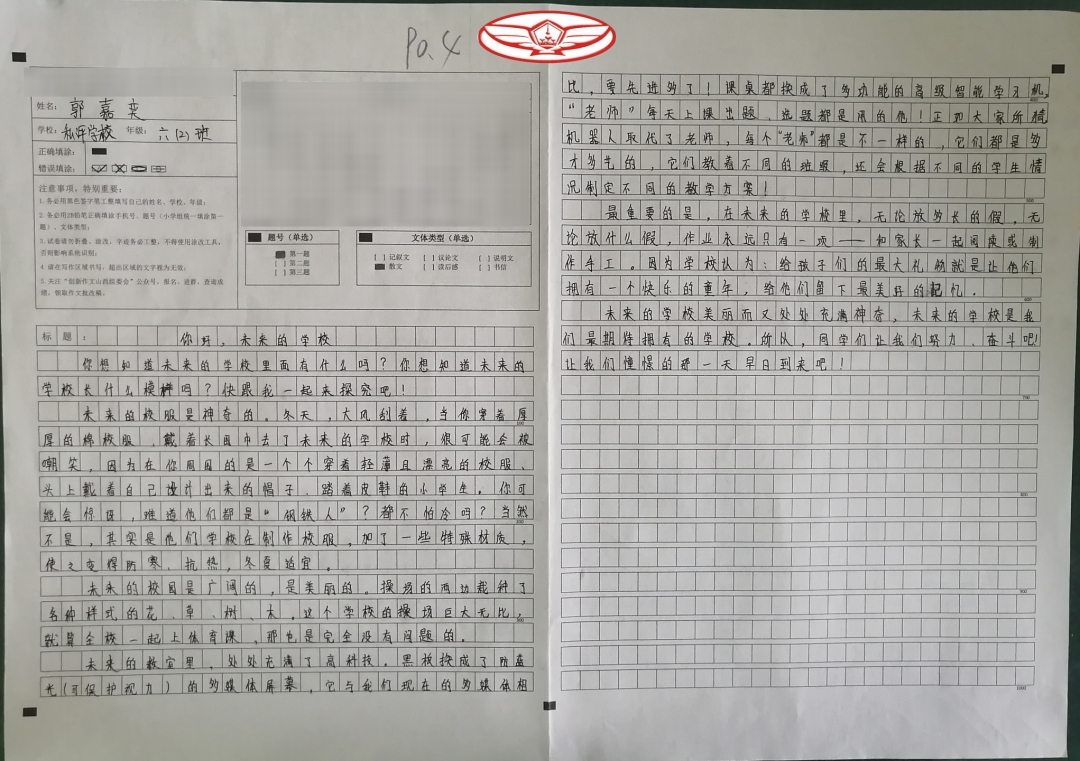 P0.4
姓名：郭嘉奕
学校：私甲学校 年级：六(2)班
正确填涂：
错误填涂：
注意事项，特别重要：
1.务必用黑色签字笔工整填写自己的姓名、学校、年级；
2.务必用2B铅笔正确填涂手机号、题号（小学组统一填涂第一
题）、文体类型；
3.试卷请勿折叠、涂改，字迹务必工整，不得使用涂改工具，
否则影响系统识别；
4.请在写作区域书写，超出区域的文字视为无效；
5.关注“创新作文山西组委会”公众号，报名、进群、查询成
绩、领取作文批改稿。
题号（单选）
第一题
[ ] 第二题
[ ] 第三题
文体类型（单选）
[ ] 记叙文 [ ] 议论文 [ ] 说明文
散文 [ ] 读后感 [ ] 书信
标题：你好，未来的学校
你想知道未来的学校里面有什么吗？你想知道未来的
学校长什么模样吗？快跟我一起来探究吧！
未来的校服是神奇的。冬天，大风刮着，当你穿着厚
厚的棉校服，戴着长围巾去了未来的学校时，很可能会被
嘲笑，因为在你周围的是一个个穿着轻薄且漂亮的校服、
头上戴着自己设计出来的帽子、踏着皮鞋的小学生。你可
能会惊讶，难道他们都是“钢铁人”？都不怕冷吗？当然
不是，其实是他们学校在制作校服，加了一些特殊材质，
使之变得防寒、抗热，冬夏适宜。
未来的校园是广阔的，是美丽的。操场的两边栽种了
各种样式的花、草、树、木。这个学校的操场巨大无比，
就算全校一起上体育课，那也是完全没有问题的。
未来的教室里，处处充满了高科技。黑板换成了防蓝
光(可保护视力)的多媒体屏幕，它与我们现在的多媒体相
比，要先进多了！课桌都换成了多功能的高级智能学习机，
“老师”每天上课出题、选题都是用的他！正如大家所猜
机器人取代了老师，每个“老师”都是不一样的，它们都是多
才多艺的，它们教着不同的班级，还会根据不同的学生情
况制定不同的教学方案！
最重要的是，在未来的学校里，无论放多长的假，无
论放什么假，作业永远只有一项——和家长一起阅读或制
作手工。因为学校认为：给孩子们的最大礼物就是让他们
拥有一个快乐的童年，给他们留下最美好的记忆。
未来的学校美丽而又处处充满神奇，未来的学校是我
们最期待拥有的学校。所以，同学们让我们努力、奋斗吧！
让我们憧憬的那一天早日到来吧！